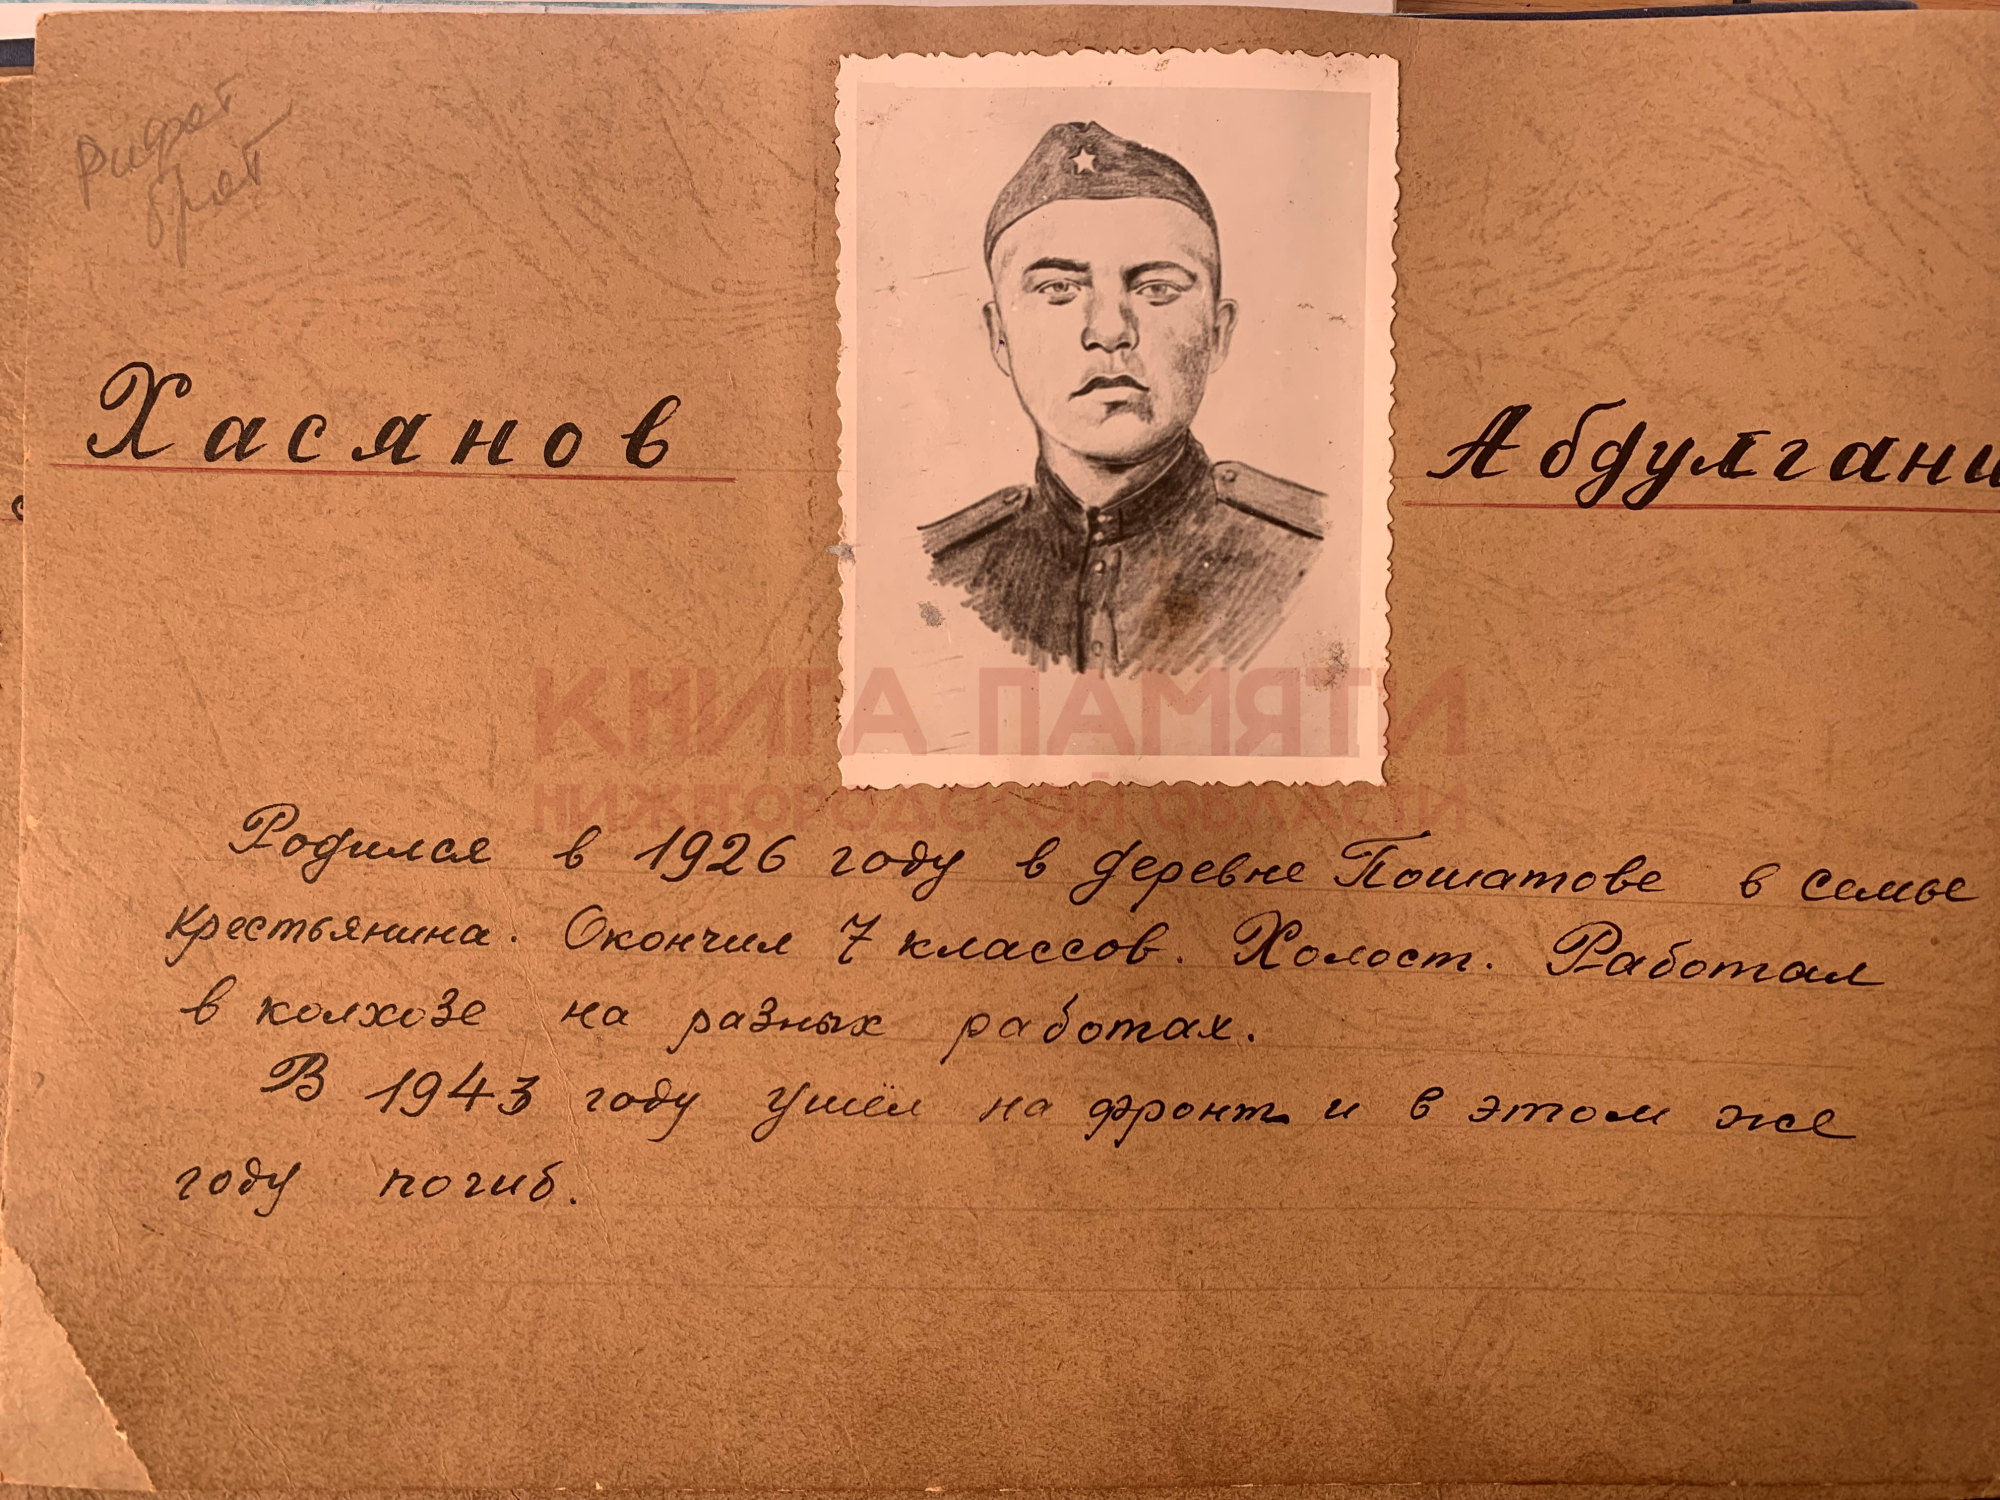 Рифат
брат
Хасянов Абдулгани
КНИГА ПАМЯТИ
НИЖЕГОРОДСКОЙ ОБЛАСТИ
Родился в 1926 году в деревне Пошатове в семье
крестьянина. Окончил 7 классов. Холост. Работал
в колхозе на разных работах.
В 1943 году ушёл на фронт и в этом же
году погиб.